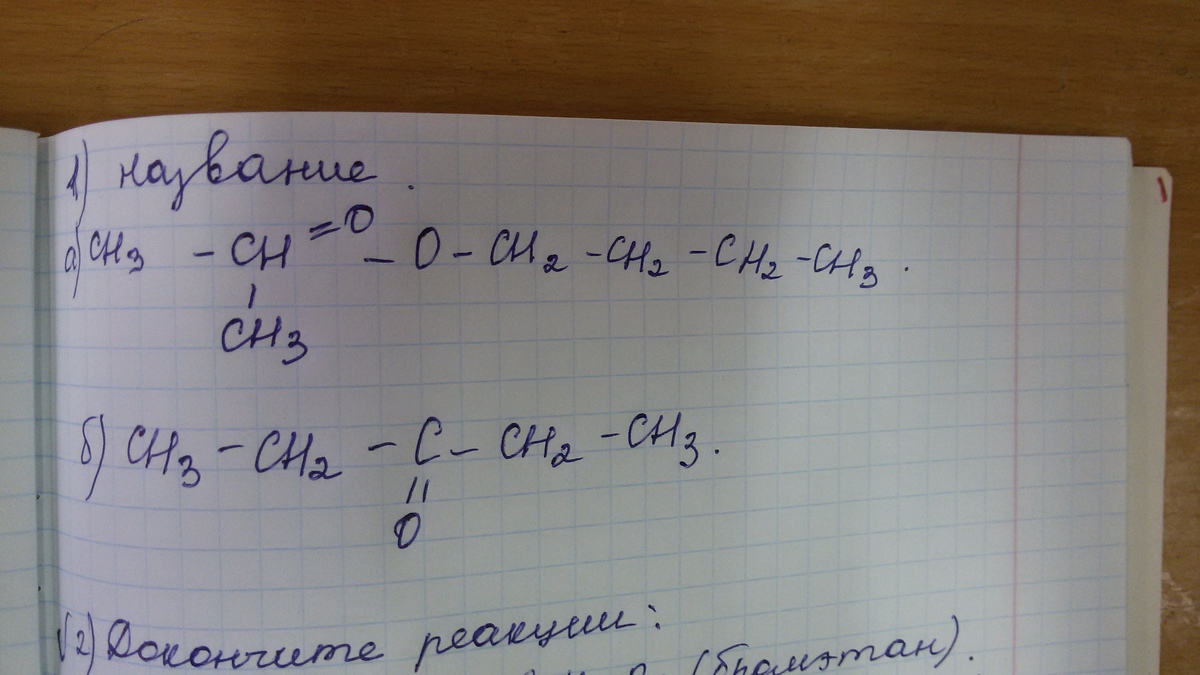 1) название.
а) CH3 - CH =O - O - CH2 - CH2 - CH2 - CH3.
CH3
б) CH3 - CH2 - C - CH2 - CH3.
O
√2) Докончите реакции:
(бромэтан).